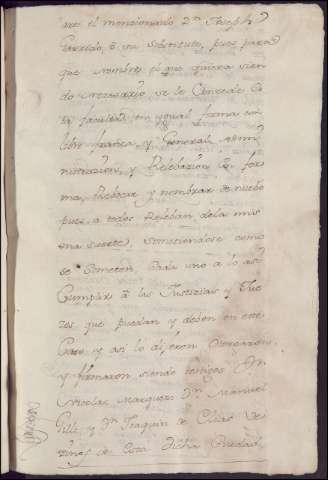 ure el mencionado Dn. Joseph
Garrido, ō su Substituto, pues para
que nombre el que quiera sien
do necesario se le Concede la
facultad en ygual forma con
libre franca, y General admi
nistracion, y Relebacion en for
ma, Rebocar y nombrar de nuebo
pues a todos Releban de la mis
ma suerte. Sometiendose como
se someten, Cada uno a lo asi
Cumplir ā las Justicias y Jue
zes que puedan y deben en este
Caso, y asi lo dijeron, Otorgaron,
y firmaron siendo testigos Dn.
Nicolas Marquez, Dn. Manuel
Gili, y Dn. Joaquin de Elias Ve
zinos de esta dicha Ciudad,